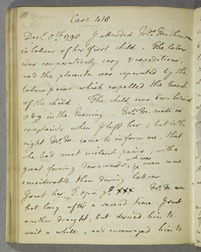 Case 418
Decr. 5th. 1790 I attended Mrs.
in labour of her first child. The labour
was comparatively easy & expeditious,
and the placenta was separated by the
labour pains which expelled the breech
of the child. The child was born before
9 in the Evening. Mrs. M. made no
complaints when I left her; but in the
night Mr. M. came to inform me, that
she had most violent pains, with a
great forcing downwards even more
considerable than during labour
I sent her
not long after a second time. I sent
another draught, but desired him to
wait a while, and encouraged him to